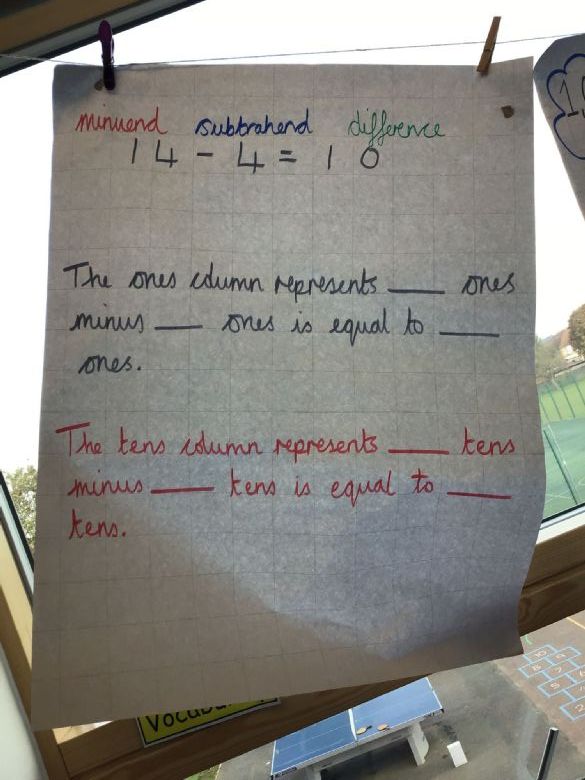 minuend subtrahend difference
14 - 4 = 10
The ones column represents ___ ones
minus ___ ones is equal to ___
ones.
The tens column represents ___ tens
minus ___ tens is equal to ___
tens.